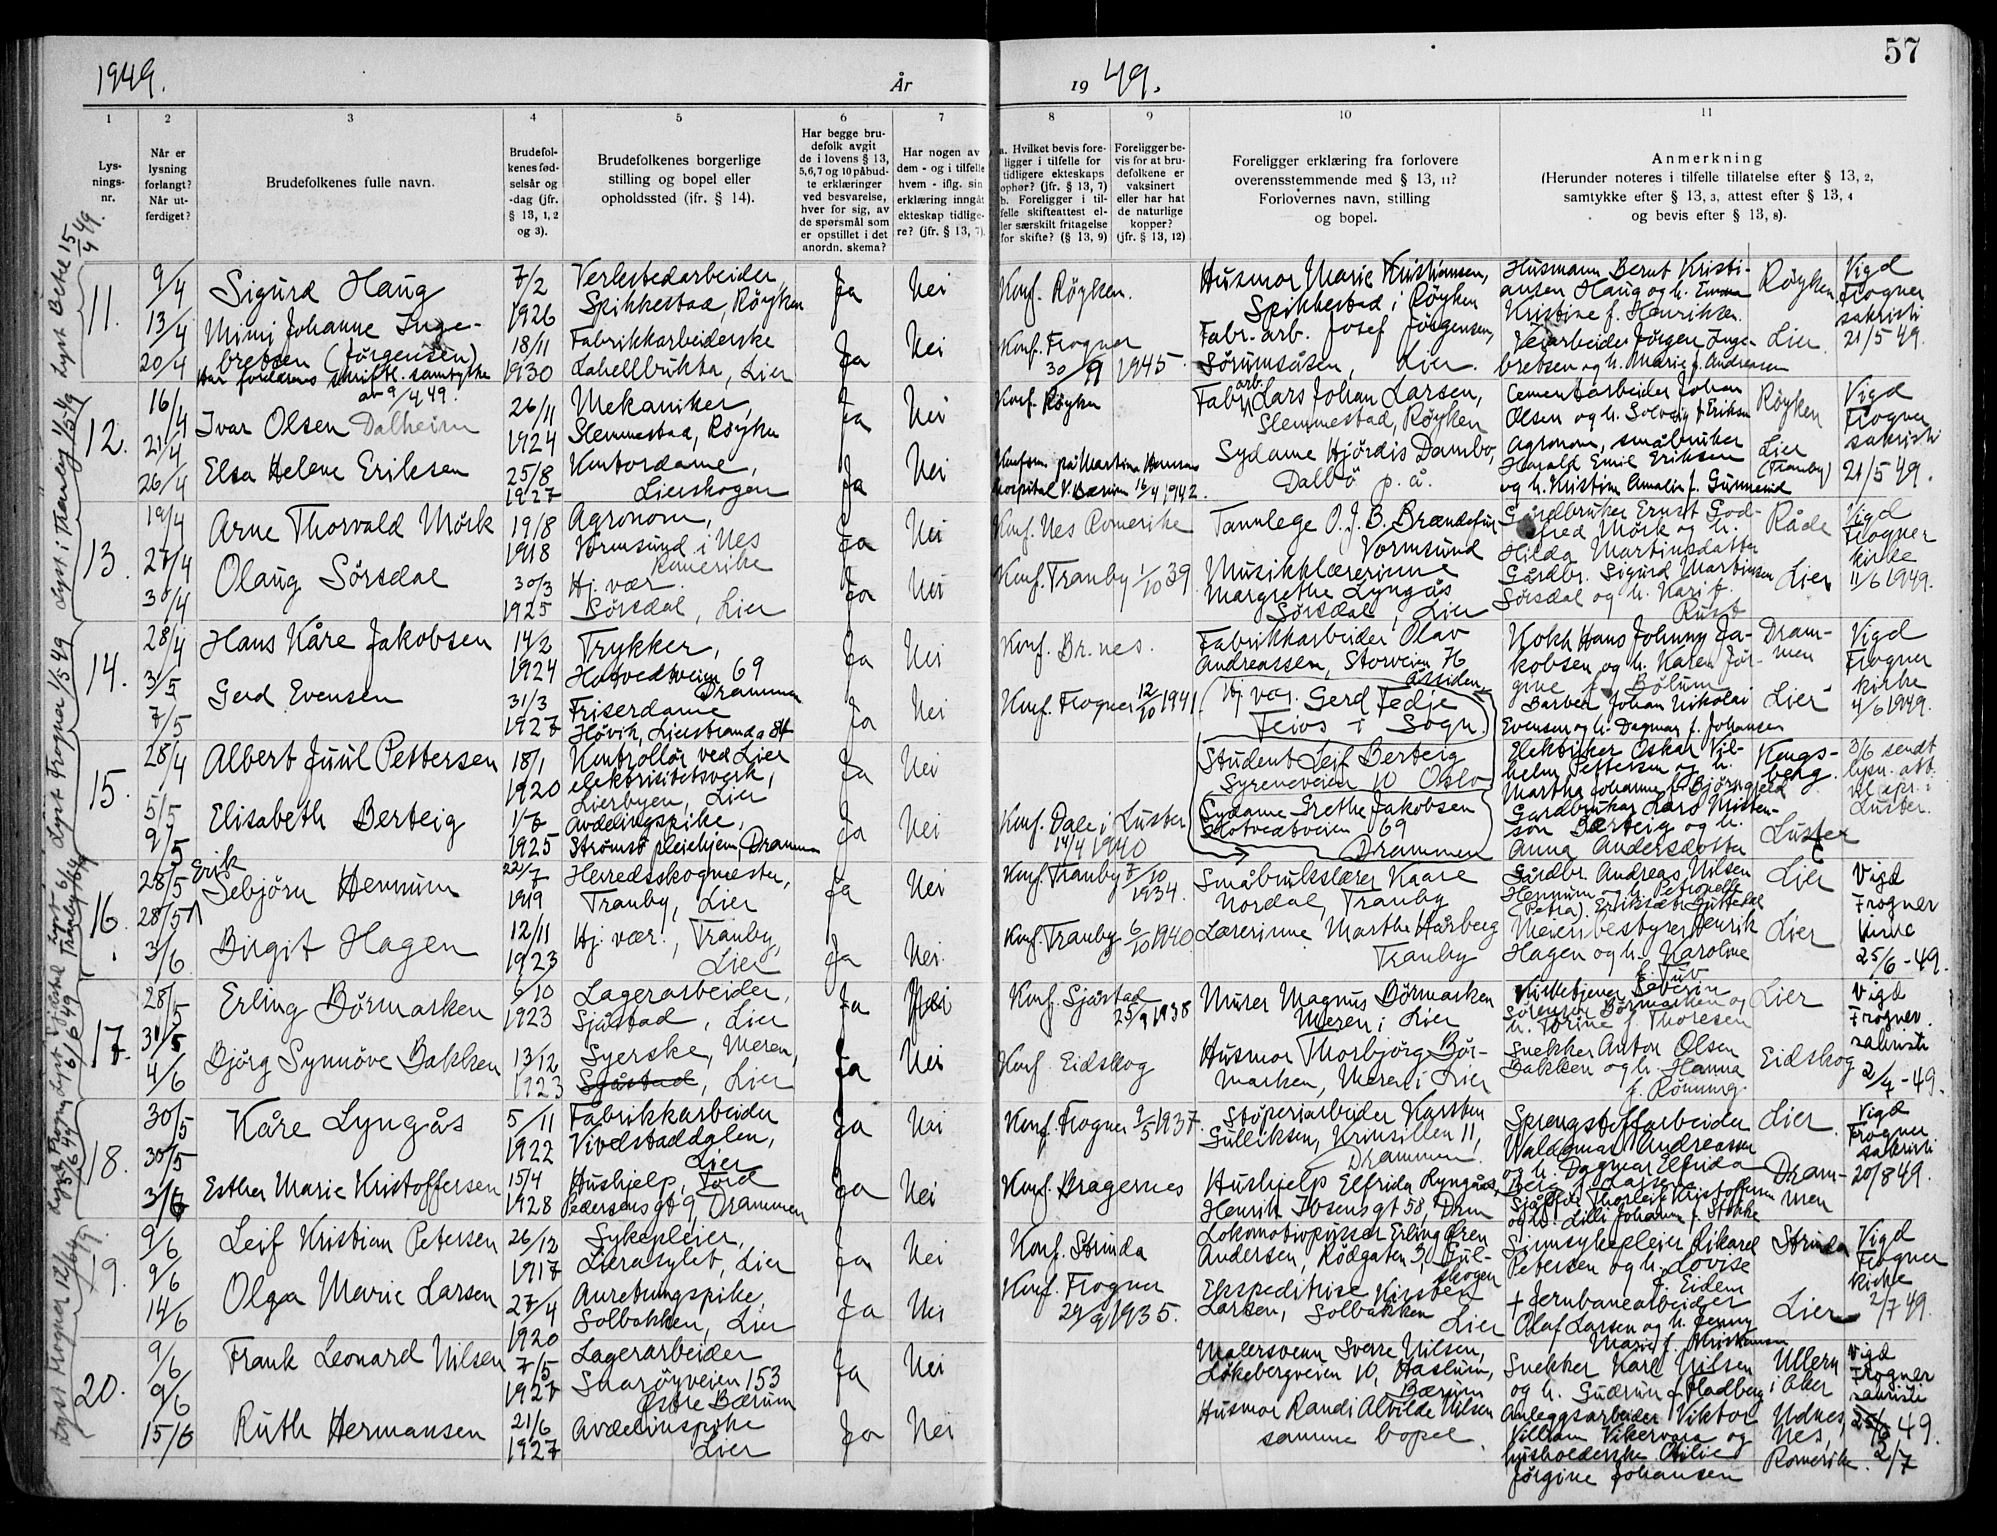 1949.
År
19 49.
57
1
Lys-
nings-
nr.
2
Når er
lysning
forlangt?
Når ut-
ferdiget?
3
Brudefolkenes fulle navn.
4
Brudefol-
kenes fød-
selsår og
-dag (jfr.
§ 13, 1, 2
og 3).
5
Brudefolkenes borgerlige
stilling og bopel eller
opholdssted (jfr. § 14).
6
Har begge bru-
defolk avgit
de i lovens § 13,
5,6,7 og 10 påbud-
te erklæringer
ved besvarelse,
hver for sig, av
de spørsmål som
er opstillet i det
anordn. skema?
7
Har nogen av
dem - og i tilfelle
hvem - iflg. sin
erklæring inngåt
ekteskap tidlige-
re? (jfr. § 13, 7).
8
a. Hvilket bevis fore-
ligger i tilfelle for
tidligere ekteskaps
ophør? (jfr. § 13, 7)
b. Foreligger i til-
felle skifteattest el-
ler særskilt fritagelse
for skifte? (§ 13, 9)
9
Foreligger be-
vis for at bru-
defolkene er
vaksinert
eller har hat
de naturlige
kopper?
(jfr. § 13, 12)
10
Foreligger erklæring fra forlovere
overensstemmende med § 13, 11?
Forlovernes navn, stilling
og bopel.
11
Anmerkning
(Herunder noteres i tilfelle tillatelse efter § 13, 2,
samtykke efter § 13, 3, attest efter § 13, 4
og bevis efter § 13, 8).
11.
9/4
13/4
20/4
Sigurd Haug
Mimi Johanne Inge-
bretsen (Jørgensen)
Har foreldrens skriftl. samtykke
av 9/4 49.
7/2
1926
18/11
1930
Verkstedarbeider,
Spikkestad, Røyken
Fabrikkarbeiderske
Lahellbukta, Lier
Ja
Ja
Nei
Nei
Konf. Røyken.
Konf. Frogner
30/9 1945
Husmor Marie Kristiansen,
Spikkestad i Røyken
Fabr. arb. Josef Jørgensen,
Sørumsåsen, Lier.
Husmann Bernt Kristi-
ansen Haug og h. Emma
Kristine f. Henriksen
Veiarbeider Jørgen Inge-
bretsen og h. Marie f. Andersen
Røyken
Lier
Vigd
Frogner
sakristi
21/5 49.
12.
16/4
21/4
26/4
Ivar Olsen Dalheim
Elsa Helene Eriksen
26/11
1924
25/8
1927
Mekaniker,
Slemmestad, Røyken
Kontordame,
Lierskogen
Ja
Ja
Nei
Nei
Konf. Røyken
Konfirm. på Martina Hansens
Hospital V. Bærum 16/4 1942.
Fabr. arb. Lars Johan Larsen,
Slemmestad, Røyken
Sydame Hjördis Dambo,
Dalbö p. å.
Cementarbeider Johan
Olsen og h. Solveig f. Eriksen
Agronom, småbruker
Harald Emil Eriksen
og h. Kristine Amalie f. Gunnerud
Røyken
Lier
(Tranby)
Vigd
Frogner
sakristi
21/5 49.
13.
19/4
27/4
30/4
Arne Thorvald Mörk
Olaug Sörsdal
19/8
1918
30/3
1925
Agronom,
Vormsund i Nes
Romerike
Hj. vær.
Sörsdal, Lier
Ja
Ja
Nei
Nei
Konf. Nes Romerike
Konf. Tranby 1/10 39
Tannlege O. J. B. Brændefur
Vormsund
Musikklærerinne
Margrethe Lyngås
Sörsdal, Lier
Gårdbruker Ernst God-
fred Mörk og h.
Hilda Martinsdatter
Gårdbr. Sigurd Martinsen
Sörsdal og h. Kari f.
Rust
Råde
Lier
Vigd
Frogner
kirke
11/6 1949.
14.
28/4
3/5
7/5
Hans Kåre Jakobsen
Gerd Evensen
14/2
1924
31/3
1927
Trykker,
Hotvedtveien 69
Drammen
Friserdame
Høvik, Lierstranda St
Ja
Ja
Nei
Nei
Konf. Br.nes.
Konf. Frogner 12/10 1941
Fabrikkarbeider Olav
Andreassen, Storveien 76
Åssiden
Hj. vær. Gerd Fedje
Feios i Sogn.
Kokk Hans Johnny Ja-
kobsen og h. Karen Jør-
gine f. Bølum
Barber Johan Nikolai
Evensen og h. Dagmar f. Johansen
Dram-
men
Lier
Vigd
Frogner
kirke
4/6 1949.
15.
28/4
5/5
9/5
Albert Juul Pettersen
Elisabeth Berteig
18/1
1920
1/8
1925
Kontrollör ved Lier
elektrisitetsverk,
Lierbyen, Lier
Avdelingspike,
Strømsö pleiehjem, Drammen
Ja
Ja
Nei
Nei
Konf. Dale i Luster
14/4 1940
Student Leif Berteig
Syreneveien 10 Oslo
Sydame Grethe Jakobsen
Hotvedtveien 69
Drammen
Elektriker Oskar Vil-
helm Pettersen og h.
Martha Johanne f. Bjørngjeld
Gardbrukar Lars Kristen-
son Berteig og h.
Anna Andersdotter
Kongs-
berg
Luster
3/6 sendt
lysn. att.
til spr. i
Luster.
16.
28/5
28/5
3/6
Erik
Sebjörn Hennum
Birgit Hagen
22/7
1919
12/11
1923
Herredsskogmester,
Tranby, Lier
Hj. vær., Tranby,
Lier
Ja
Ja
Nei
Nei
Konf. Tranby 7/10
1934.
Konf. Tranby 6/10 1940
Småbrukslærer Kaare
Nordal, Tranby
Lærerinne Marthe Hårberg
Tranby
Gårdbr. Andreas Nilsen
Hennum og h. Petronelle
(Petra) Eriksdtr Guttedal
Meieribestyrer Henrik
Hagen og h. Karoline
f. Tuv
Lier
Lier
Vigd
Frogner
kirke
25/6 - 49.
17.
28/5
31/5
4/6
Erling Börmarken
Björg Synnöve Bakken
6/10
1923
13/12
1923
Lagerarbeider,
Sjåstad, Lier
Syerske, Meren,
Sjåstad, Lier
Ja
Ja
Nei
Nei
Konf. Sjåstad
25/9 1938
Konf. Eidskog
Murer Magnus Börmarken
Meren i Lier
Husmor Thorbjörg Bör-
marken, Meren i Lier
Kirketjener Severin
Sörensen Börmarken og
h. Torine f. Thoresen
Snekker Anton Olsen
Bakken og h. Hanna
f. Rönning.
Lier
Eidskog
Vigd
Frogner
sakristi
2/7 - 49.
18.
30/5
30/5
3/6
Kåre Lyngås
Esther Marie Kristoffersen
5/11
1922
15/4
1928
Fabrikkarbeider
Vivelstaddalen,
Lier
Hushjelp, Tord
Pedersens gt 9, Drammen
Ja
Ja
Nei
Nei
Konf. Frogner 9/5 1937
Konf. Bragernes
Støperiarbeider Karsten
Gulliksen, Krinsillen 11,
Drammen
Hushjelp Elfrida Lyngås,
Henrik Ibsens gt 58, Drm
Sprengstoffarbeider
Waldemar Andreassen
og h. Dagmar Elfrida
Berg f. Larsen
Sjåfør Thorleif Kristoffersen
og h. Lilli Johanne f. Stokke
Lier
Dram-
men
Vigd
Frogner
sakristi
20/8 49.
19.
9/6
9/6
14/6
Leif Kristian Petersen
Olga Marie Larsen
26/12
1917
27/4
1920
Sykepleier,
Lierasylet, Lier
Anretningspike,
Solbakken, Lier
Ja
Ja
Nei
Nei
Konf. Strinda
Konf. Frogner
29/9 1935.
Lokomotivpusser Erling Ören
Andersen, Rödgaten 3, Gul-
skogen
Ekspeditrise Kirsten
Larsen, Solbakken
Lier
Sinnsykepleier Rikard
Petersen og h. Lovise
f. Eidem
+ Jernbanearbeider
Olaf Larsen og h. Jenny
Marie f. Kristiansen
Strinda
Lier
Vigd
Frogner
kirke
2/7 49.
20.
9/6
9/6
15/6
Frank Leonard Nilsen
Ruth Hermansen
7/5
1927
21/6
1927
Lagerarbeider
Snarøyveien 153
Østre Bærum
Avdelinspike
Lier
Ja
Ja
Nei
Nei
Malersvenn Sverre Nilsen,
Løkebergveien 10, Haslum,
Bærum
Husmor Randi Alvilde Nilsen
samme bopel.
Snekker Karl Nilsen
og h. Gudrun f. Fladberg
Anleggsarbeider Viktor
Villiam Vikervara og
husholderske Otilie
Jørgine Johansen
Ullern
i Aker
Udnes,
Nes,
Romerike.
Vigd
Frogner
sakristi
49.
2/7
Lyst Betel 15/4 49.
Lyst i Tranby 1/5 49
Lyst Frogner 1/5 49
Lyst Frogner 12/6 49